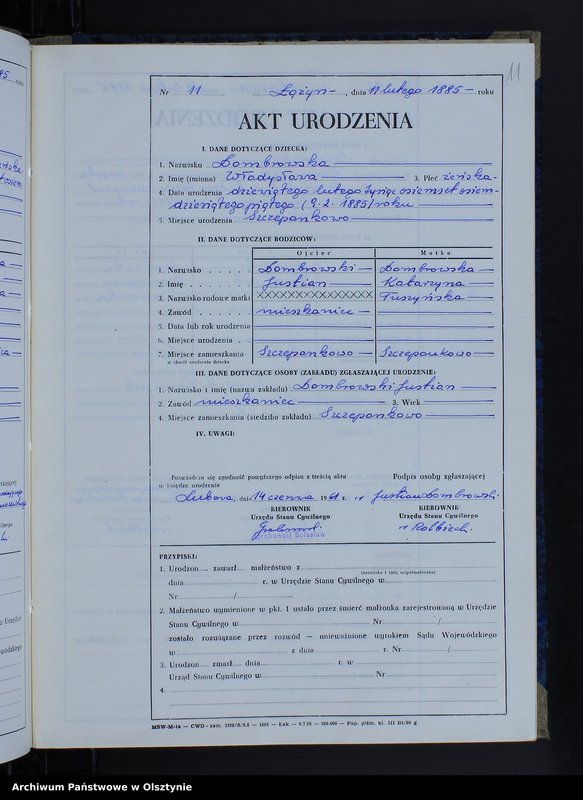 11
Nr 11, Łążyn, dnia 12 lutego 1885 roku
AKT URODZENIA
I. DANE DOTYCZĄCE DZIECKA:
1. Nazwisko Dombrowska
2. Imię (imiona) Władysława 3. Płeć żeńska
4. Data urodzenia dziewiątego lutego tysiąc osiemset osiem-
dziesiątego piątego (9.2.1885) roku
5. Miejsce urodzenia Szczepankowo
II. DANE DOTYCZĄCE RODZICÓW:
Ojciec Matka
1. Nazwisko Dombrowski Dombrowska
2. Imię Justian Katarzyna
3. Nazwisko rodowe matki XXXXXXXXXXX Tuszyńska
4. Zawód mieszkaniec
5. Data lub rok urodzenia
6. Miejsce urodzenia
7. Miejsce zamieszkania Szczepankowo Szczepankowo
w chwili urodzenia dziecka
III. DANE DOTYCZĄCE OSOBY (ZAKŁADU) ZGŁASZAJĄCEJ URODZENIE:
1. Nazwisko i imię (nazwa zakładu) Dombrowski Justian
2. Zawód mieszkaniec 3. Wiek
4. Miejsce zamieszkania (siedziba zakładu) Szczepankowo
IV. UWAGI:
Poświadcza się zgodność powyższego odpisu z treścią aktu
w księdze urodzenia
Podpis osoby zgłaszającej
Lubawa, dnia 14 czerwca 1961 r. Justian Dombrowski
KIEROWNIK
Urzędu Stanu Cywilnego
KIEROWNIK
Urzędu Stanu Cywilnego
PRZYPISKI:
1. Urodzon zawarł małżeństwo z
(nazwisko i imię współmałżonka)
dnia r. w Urzędzie Stanu Cywilnego w
Nr /
2. Małżeństwo wymienione w pkt. 1 ustało przez śmierć małżonka zarejestrowaną w Urzędzie
Stanu Cywilnego w Nr /
zostało rozwiązane przez rozwód — unieważnione wyrokiem Sądu Wojewódzkiego
w z dnia r. Nr /
3. Urodzon zmarł dnia r. w
Urząd Stanu Cywilnego w Nr
4.
Archiwum Państwowe w Olsztynie